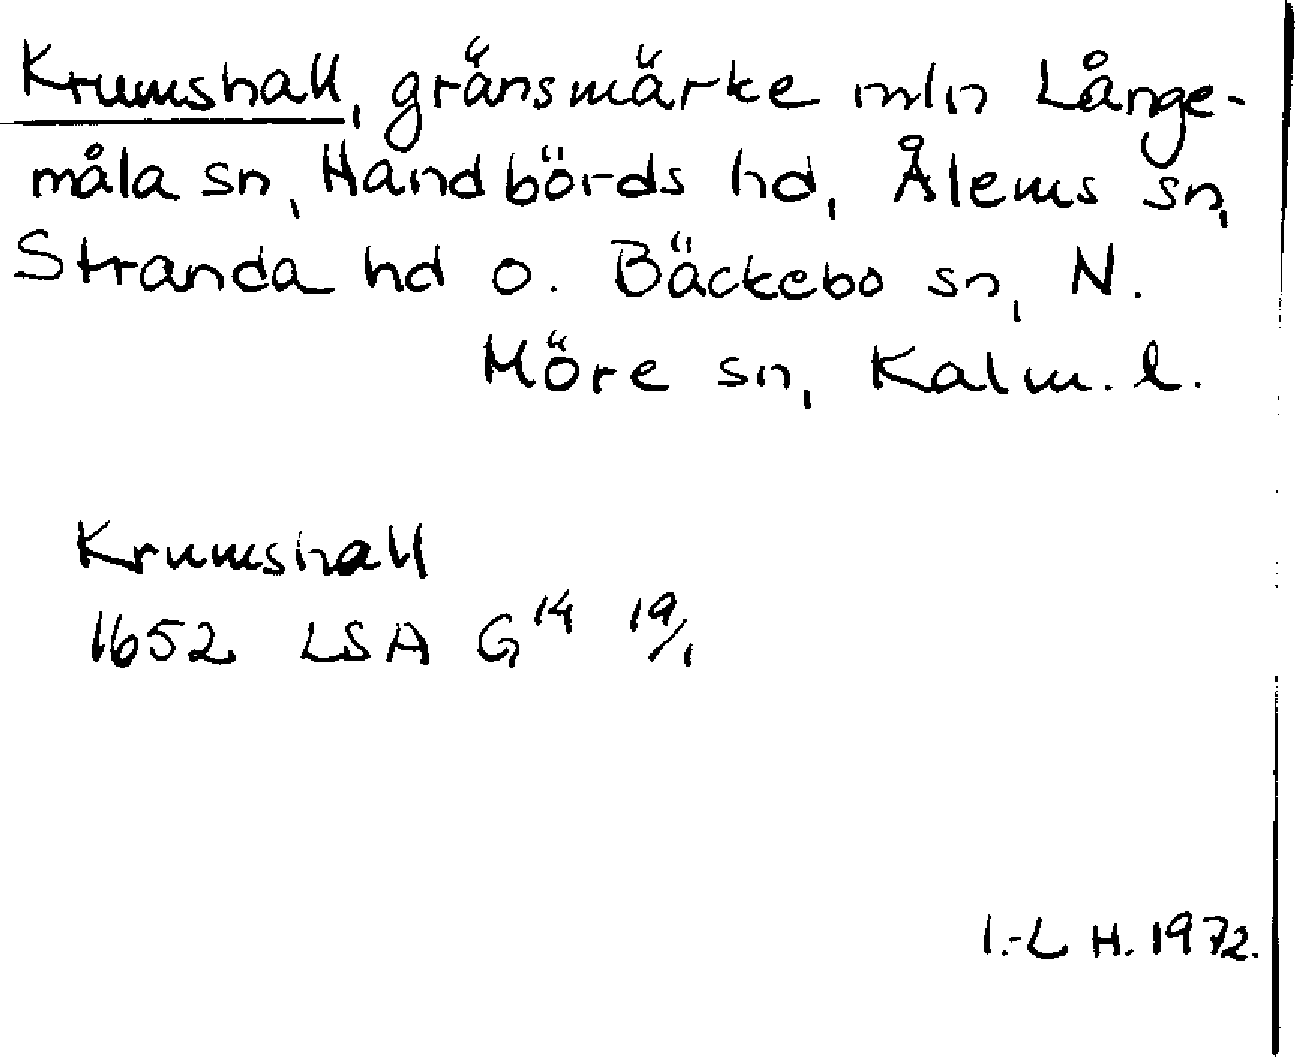 Krumshall, gränsmärke mln Långe-
måla sn, Handbörds hd, Ålems sn,
Stranda hd o. Bäckebo sn, N.
Möre sn, Kalm. l.
Krumshall
1652 LSA G¹⁴ 19/1
I.-L H. 1972.